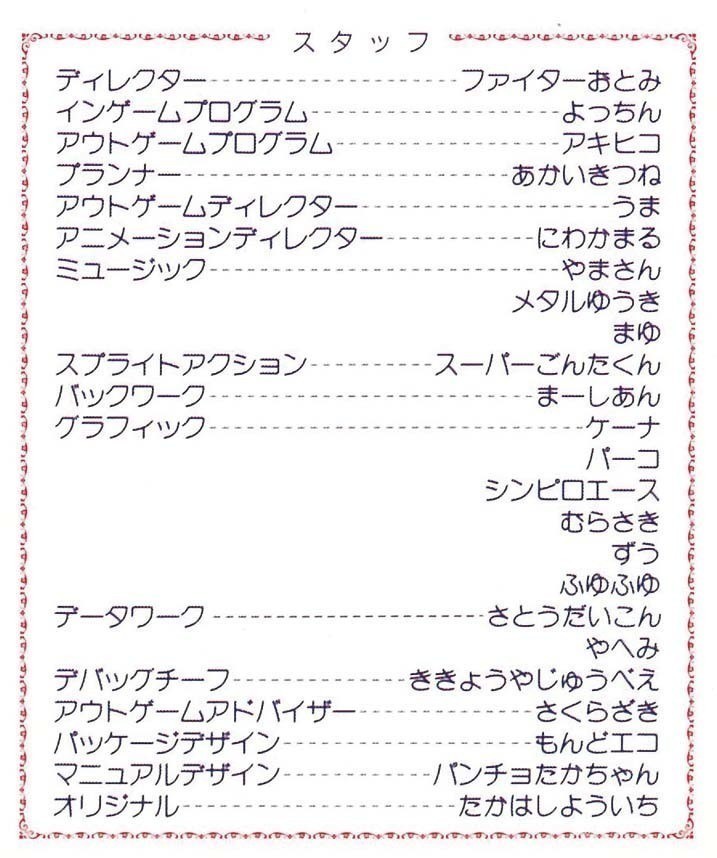 スタッフ
ディレクター----------ファイターおとみ
インゲームプログラム----------よっちん
アウトゲームプログラム----------アキヒコ
プランナー----------あかいきつね
アウトゲームディレクター----------うま
アニメーションディレクター----------にわかまる
ミュージック----------やまさん
メタルゆうき
まゆ
スプライトアクション----------スーパーごんたくん
バックワーク----------まーしあん
グラフィック----------ケーナ
パーコ
シンピロエース
むらさき
ずう
ふゆふゆ
データワーク----------さとうだいこん
やへみ
デバッグチーフ----------ききょうやじゅうべえ
アウトゲームアドバイザー----------さくらざき
パッケージデザイン----------もんどエコ
マニュアルデザイン----------パンチョたかちゃん
オリジナル----------たかはしよういち